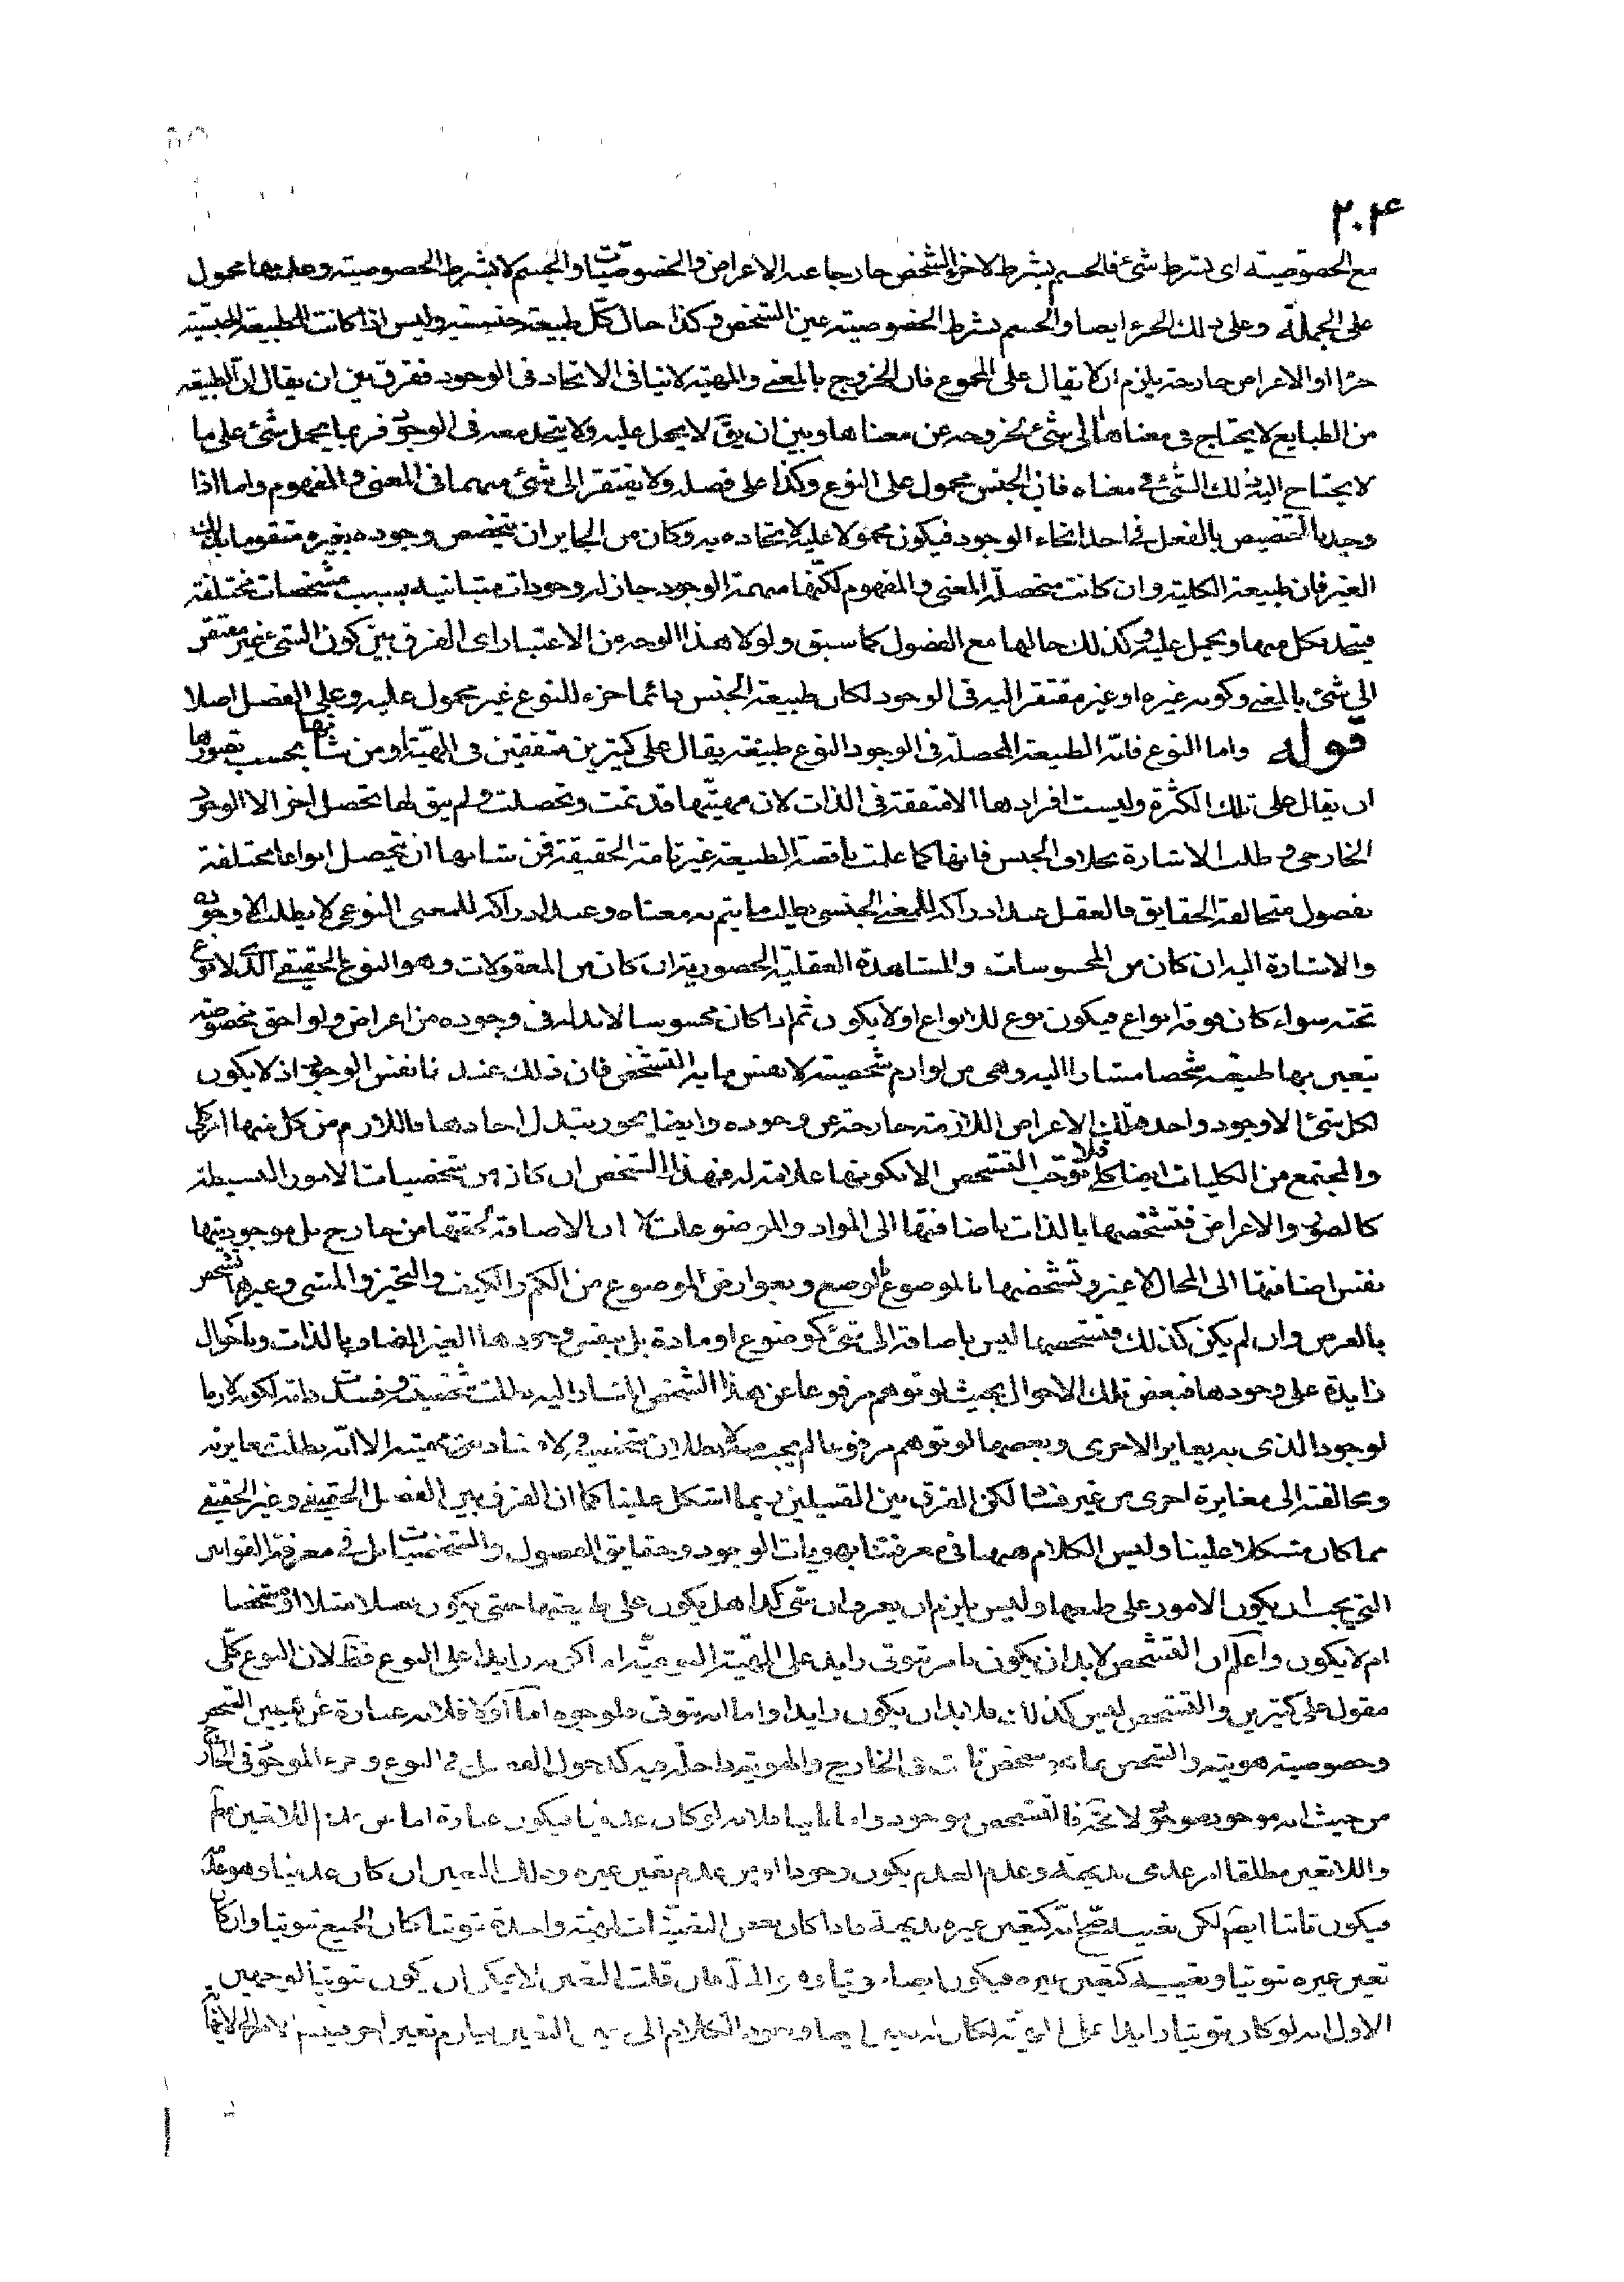 ٢٠٤
مع الخصوصية اى بشرط شئ فالجسم بشرط لا جزء الشخص خارجا عنه الاعراض والخصوصيات والجسم لا بشرط الخصوصية وعدمها محمول
على الجملة وعلى ذلك الجزء ايضا والجسم بشرط الخصوصية عين الشخص وكذا حال كل طبيعة جنسية وليس اذا كانت الطبيعة الجنسية
جزءا او الاعراض خارجة يلزم ان لا يقال على المجموع فان الخروج بالمعنى والمهية لا ينافى الاتحاد فى الوجود ففرق بين ان يقال ان الطبيعة
من الطبايع لا يحتاج فى معناها الى شئ لخروجه عن معناها وبين ان يق لا يحمل عليه ولا يتحد معه فى الوجود فربما يحمل شئ على ما
لا يحتاج اليه ذلك الشئ فى معناه فان الجنس محمول على النوع وكذا على فصله ولا يفتقر الى شئ منهما فى المعنى والمفهوم واما اذا
وجد بالتخصيص بالفعل فى احد انحاء الوجود فيكون محمولا عليه لاتحاده به وكان من الجايز ان يتخصص وجوده بغيره متقوما بذلك
الغير فان طبيعة الكلية وان كانت متحصلة المعنى والمفهوم لكنها مبهمة الوجود جاز له وجودات متباينة بسبب مشخصات مختلفة
فيتحد بكل منها ويحمل عليه وكذلك حالها مع الفصول كما سبق ولولا هذا الوجه من الاعتبار اى الفرق بين كون الشئ غير مفتقر
الى شئ بالمعنى وكونه غيره او غير مفتقر اليه فى الوجود لكان طبيعة الجنس دائما جزء للنوع غير محمول عليه وعلى الفصل اصلا
قوله واما النوع فانه الطبيعة المحصلة فى الوجود النوع طبيعة يقال على كثيرين متفقين فى المهية او من شانها بحسب تصورها
ان يقال على تلك الكثرة وليست افرادها الا متفقة فى الذات لان مهيتها قد تمت وتحصلت ولم يبق لها تحصل اخر الا الوجود
الخارجى وطلب الاشارة بخلاف الجنس فانها كما علمت ناقصة الطبيعة غير تامة الحقيقة فمن شانها ان يتحصل انواعا مختلفة
بفصول متخالفة الحقايق فالعقل عند ادراكه للمعنى الجنسى يطلب ما يتم به معناه وعند ادراكه للمعنى النوعى لا يطلب الا وجوده
والاشارة اليه ان كان من المحسوسات والمشاهدة العقلية الحضورية ان كان من المعقولات وهو النوع الحقيقى الذى لا نوع
تحته سواء كان فوقه انواع فيكون نوع للانواع او لا يكون ثم اذا كان محسوسا لا بد له فى وجوده من اعراض ولواحق مخصوصة
يتعين بها طبيعة شخصا مشارا اليه وهى من لوازم شخصيته لا نفس ما به التشخص فان ذلك عندنا نفس الوجود اذ لا يكون
لكل شئ الا وجود واحد وتلك الاعراض اللازمة خارجة عن وجوده وايضا يجوز تبدل احادها فاللازم من كل منها امر كلى
والمجتمع من الكليات ايضا كلى فلا يوجب التشخص الا بكونها علامة له فهذا التشخص ان كان من شخصيات الامور البسيطة
كالصور والاعراض فتشخصها بالذات باضافتها الى المواد والموضوعات لا ان الاضافة لحقتها من خارج بل موجوديتها
نفس اضافتها الى المحال لا غير وتشخصها بالموضوع بالوضع وبعوارض الموضوع من الكم والكيف والتحيز والمتى وغيرها تشخص
بالعرض وان لم يكن كذلك فتشخصها ليس باضافة الى شئ كموضوع او مادة بل بنفس وجودها الغير المضاف بالذات وباحوال
زايدة على وجودها فبعض تلك الاحوال بحيث لو توهم مرفوعا عن هذا الشخص المشار اليه بطلت شخصيته وفسدت ذاته لكونه لازما
لوجود الذى به يغاير الاخرى وبعضها لو توهم مرفوعا لم يجب لا بطلان شخصيته ولا فساد من مهيته الا انه بطلت مغايرته
ومخالفته الى مغايرة اخرى من غير فساد لكن الفرق بين القسمين ربما اشكل علينا كما ان الفرق بين الفصل الحقيقى وغير الحقيقى
مما كان مشكلا علينا وليس الكلام ههنا فى معرفتنا بهويات الوجود وحقايق الفصول والتشخصيات بل فى معرفة القوانين
التى يجب ان يكون الامور على طبعها وليس يلزم ان يعرف ان شئ كذا هل يكون على طبيعتها حتى يكون فصلا مثلا او مشخصا
ام لا يكون واعلم ان التشخص لا بد ان يكون بامر ثبوتى زايد على المهية النوعية اما كونه زايدا على النوع فقط لان النوع كلى
مقول على كثيرين والتشخص ليس كذلك فلا بد ان يكون زايدا واما انه ثبوتى فلوجوه اما اولا فلانه عبارة عن تعيين الشخص
وخصوصية هويته والشخص بما هو شخص ثابت فى الخارج والهوية داخلة فيه كدخول الفصل فى النوع وجزء الموجود فى الخارج
من حيث انه موجود موجود لا محة فالتشخص موجود واما ثانيا فلانه لو كان عدميا فيكون عبارة اما عن عدم اللاتعين مط
واللاتعين مطلقا امر عدمى بديهة وعدم العدم يكون وجودا او عن عدم تعين غيره وذلك التعين ان كان عدميا وهو عدمه
فيكون ثابتا ايضا لكن تعينه كتعين غيره بديهة فاذا كان بعض التعينات لمهية واحدة ثبوتيا كان الجميع ثبوتيا وان كان
تعين غيره ثبوتيا وتعينه كتعين غيره فيكون ايضا ثبوتيا وهو المط فان قلت التعين لا يمكن ان يكون ثبوتيا لوجهين
الاول انه لو كان ثبوتيا زايدا على المهية لكان له تعين ايضا ويعود الكلام الى تعين التعين فيلزم تعين اخر